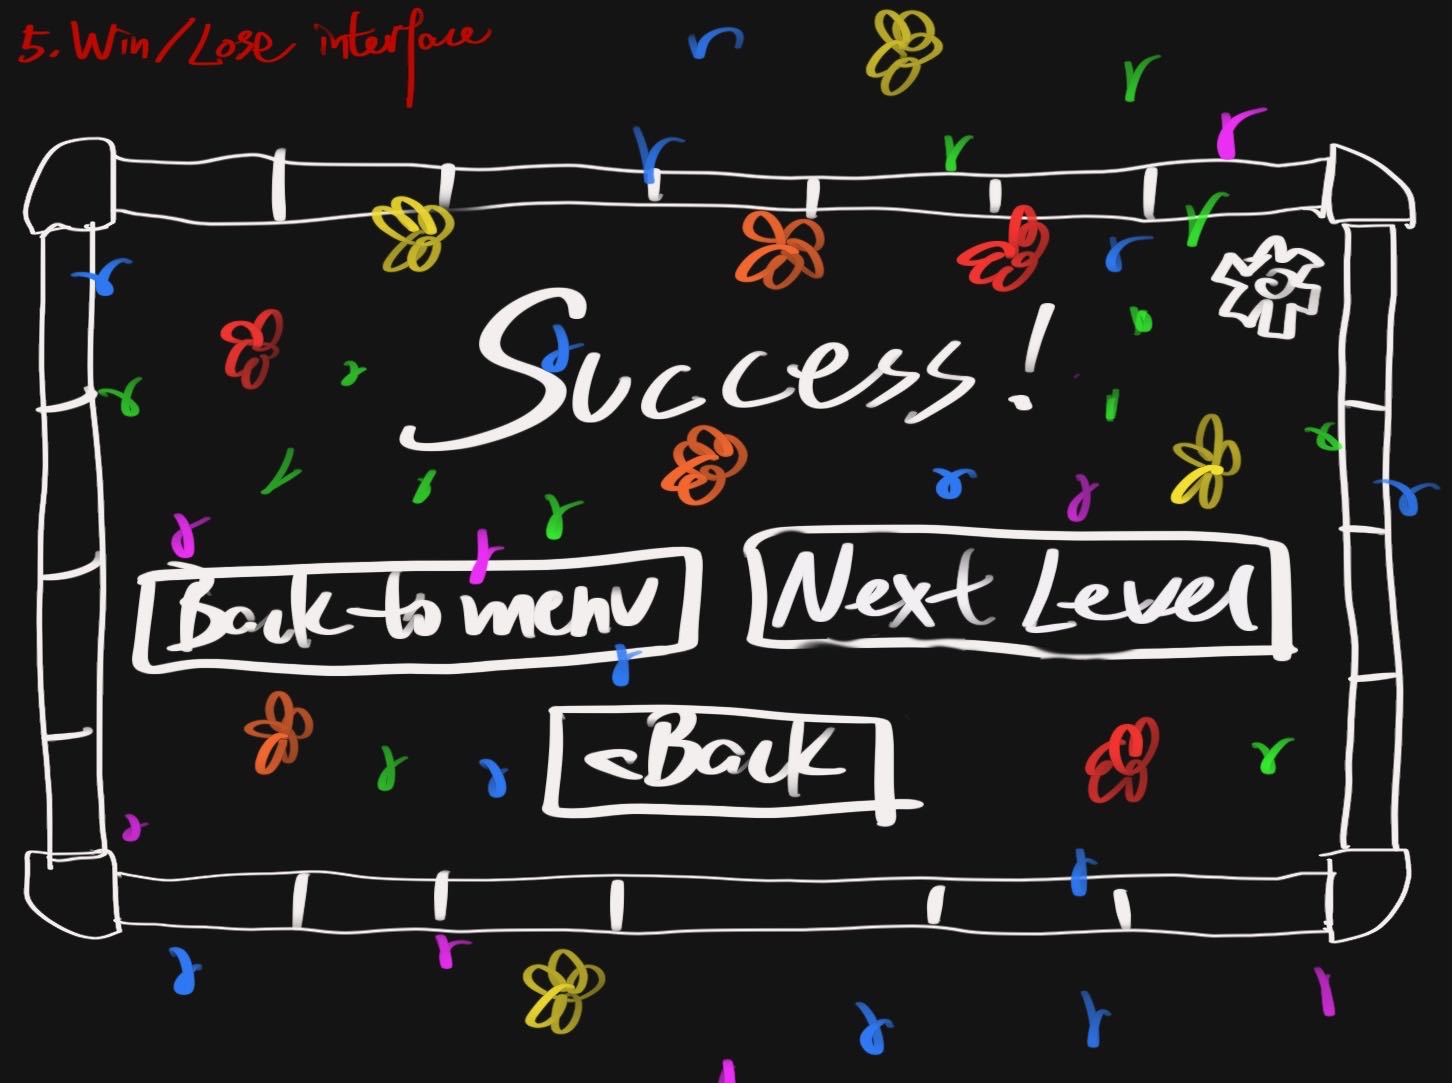 5. Win/Lose interface
Success!
Back to menu
Next Level
<Back